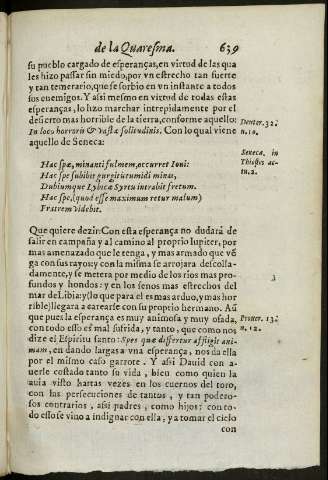 de la Quaresma. 639
su pueblo cargado de esperanças, en virtud de las qua
les hizo passar sin miedo, por vn estrecho tan fuerte
y tan temerario, que se sorbio en vn instante a todos
sus enemigos. Y assi mesmo en virtud de todas estas
esperanças, lo hizo marchar intrepidamente por el
desierto mas horrible de la tierra, conforme aquello:
Deuter. 32.
n. 10.
In loco horroris & vastæ solitudinis. Con lo qual viene
aquello de Seneca:
Seneca. in
Thiestes ac-
tu. 2.
Hac spe, minanti fulmen, occurret Ioui:
Hac spe subibit gurgiti tumidi minas,
Dubiumque Lybicæ Syrtu intrabit fretum.
Hac spe, (quod esse maximum retur malum)
Fratrem videbit.
Que quiere dezir: Con esta esperança no dudarà de
salir en campaña y al camino al proprio Iupiter, por
mas amenazado que le tenga, y mas armado que vẽ
ga con sus rayos: y con la misma se arrojara descolla-
damente, y se metera por medio de los rios mas pro-
fundos y hondos: y en los senos mas estrechos del
mar de Libia: y (lo que para el es mas arduo, y mas hor
rible) llegara a carearse con su proprio hermano. Aũ
que pues la esperança es muy animosa y muy osada,
Prouer. 13.
n. 12.
con todo esso es mal sufrida, y tanto, que como nos
dize el Espiritu santo: Spes quæ differtur affligit ani-
mam, en dando largas a vna esperança, nos da ella
por el mismo caso garrote. Y assi Dauid con a-
uerle costado tanto su vida, bien como quien la
auia visto hartas vezes en los cuernos del toro,
con las persecuciones de tantos, y tan podero-
sos contrarios, assi padres, como hijos: con to-
do esso se vino a indignar con ella; y a tomar el cielo
con